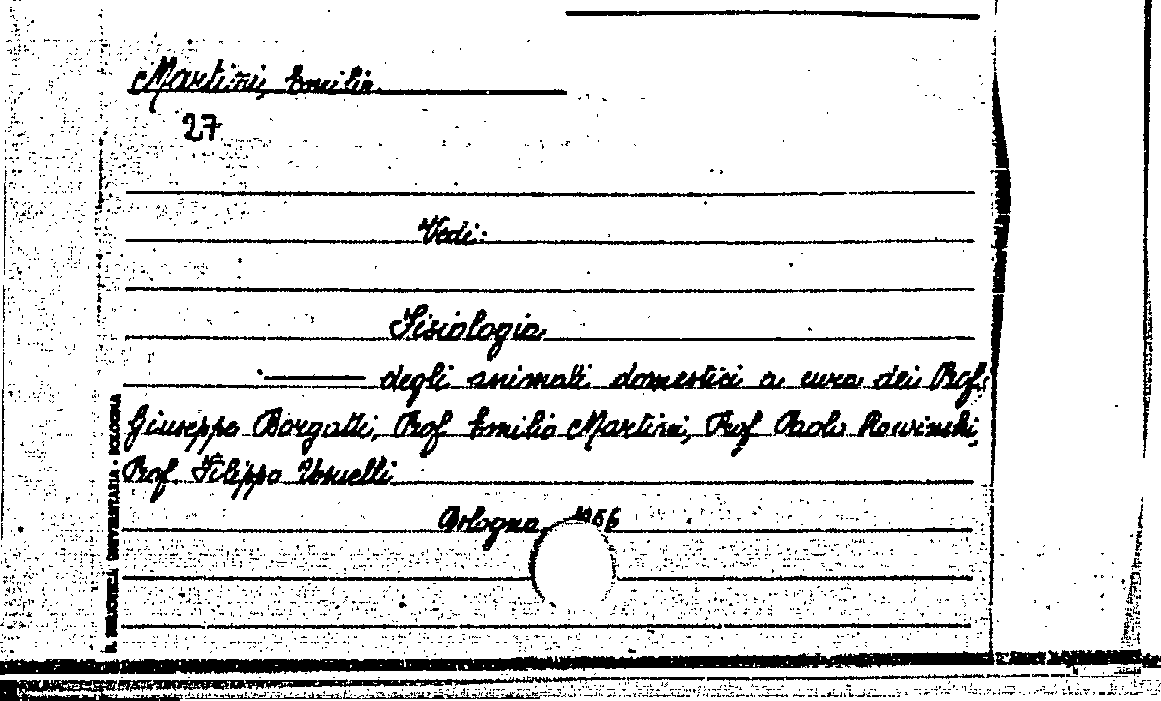 Martini, Emilio
27
Vedi:
Fisiologia
——— degli animali domestici a cura dei Prof.
Giuseppe Borgatti, Prof Emilio Martini, Prof Paolo Rowinski,
Prof. Filippo Usuelli
Bologna, 1956
R. BIBLIOTECA UNIVERSITARIA - BOLOGNA